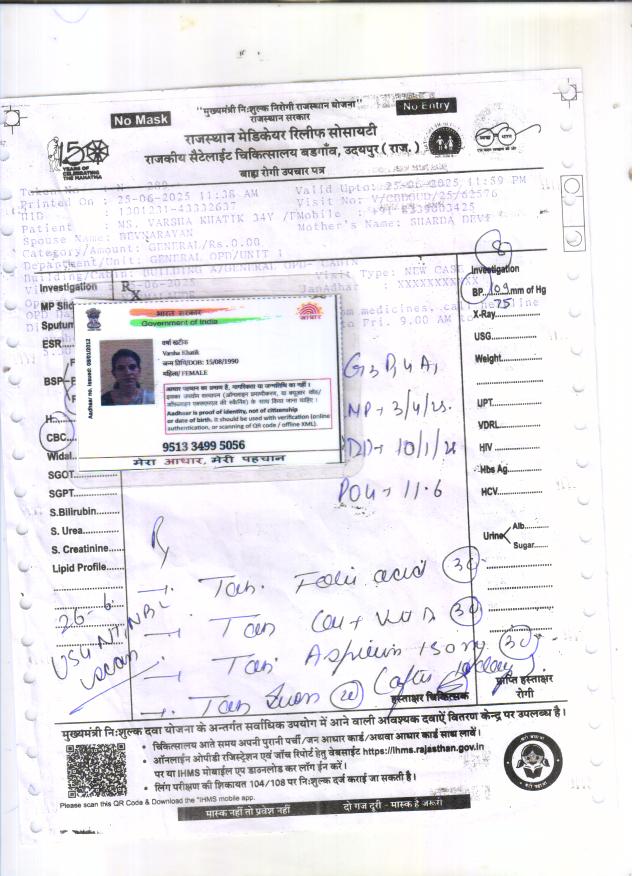 "मुख्यमंत्री निःशुल्क निरोगी राजस्थान योजना"
राजस्थान सरकार
No Mask
No Entry
150
YEARS OF
CELEBRATING
THE MAHATMA
राजस्थान मेडिकेयर रिलीफ सोसायटी
राजकीय सैटेलाईट चिकित्सालय बडगाँव, उदयपुर ( राज. )
बाह्य रोगी उपचार पत्र
Printed On : 25-06-2025 11:38 AM
Valid Upto: 25-06-2025 11:59 PM
HID : 1301231-43232637
Visit No: V/CBDGUD/25/62576
Patient : MS. VARSHA KHATIK 34Y /F
Mobile : +91-8339003425
Spouse Name: DEVNARAYAN
Mother's Name: SHARDA DEVI
Category/Amount: GENERAL/Rs.0.00
Department/Unit: GENERAL OPD/UNIT 1
Building/Cabin: BUILDING A/GENERAL OPD- CABIN 8
Visit Type: NEW CASE
-06-2025
JanAdhar : XXXXXXX
medicines, call helpline
to Fri. 9.00 AM to
Investigation
Rx
MP Slid
Sputum
ESR
BSP
CBC
Widal
SGOT
SGPT
S.Bilirubin
S. Urea
S. Creatinine
Lipid Profile
Investigation
BP 109 mm of Hg
75
X-Ray
USG
Weight
UPT
VDRL
HIV
Hbs Ag.
HCV
Urine
Alb.
Sugar
भारत सरकार
Government of India
आधार
Aadhaar no. issued: 08/01/2012
वर्षा खटीक
Varsha Khatik
जन्म तिथि/DOB: 15/08/1990
महिला/ FEMALE
आधार पहचान का प्रमाण है, नागरिकता या जन्मतिथि का नहीं।
इसका उपयोग सत्यापन (ऑनलाइन प्रमाणीकरण, या क्यूआर कोड/
ऑफलाइन एक्सएमएल की स्कैनिंग) के साथ किया जाना चाहिए।
Aadhaar is proof of identity, not of citizenship
or date of birth. It should be used with verification (online
authentication, or scanning of QR code / offline XML).
9513 3499 5056
मेरा आधार, मेरी पहचान
POG → 11.6
Rx
→ Tab. Folic acid (30)
→ Tab Cal + Vit D (30)
→ Tab. Aspirin 150 mg (30)
→ Tab (20) (after
26-6
USG NT/NB
scan
हस्ताक्षर चिकित्सक
प्राप्ति हस्ताक्षर
रोगी
मुख्यमंत्री निःशुल्क दवा योजना के अन्तर्गत सर्वाधिक उपयोग में आने वाली आवश्यक दवाऐं वितरण केन्द्र पर उपलब्ध है।
• चिकित्सालय आते समय अपनी पुरानी पर्ची/जन आधार कार्ड/अथवा आधार कार्ड साथ लावें।
• ऑनलाईन ओपीडी रजिस्ट्रेशन एवं जाँच रिपोर्ट हेतु वेबसाईट https://ihms.rajasthan.gov.in
पर या IHMS मोबाईल एप डाउनलोड कर लॉग ईन करें।
• लिंग परीक्षण की शिकायत 104/108 पर निःशुल्क दर्ज कराई जा सकती है।
Please scan this QR Code & Download the "IHMS mobile app.
मास्क नहीं तो प्रवेश नहीं
दो गज दूरी - मास्क है जरूरी